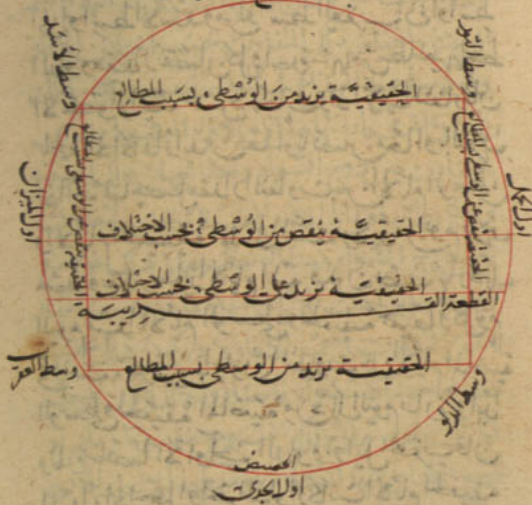 وسط الثور
وسط الأسد
الحقيقية يزيد من الوسطى بسبب المطالع
أول الحمل
أول الميزان
الحقيقية ينقص من الوسطى بسبب المطالع
الحقيقية ينقص من الوسطى بسبب المطالع
الحقيقية ينقص من الوسطى بحسب الاختلاف
الحقيقية يزيد على الوسطى بحسب الاختلاف
القطعة القريبية
الحقيقية يزيد من الوسطى بسبب المطالع
وسط الدلو
وسط العقرب
الحضيض
أول الجدي